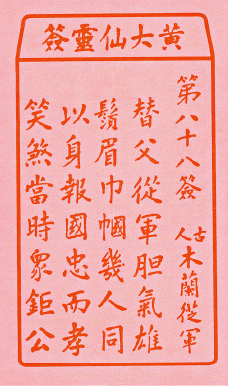 黃大仙靈簽
第八十八簽 古人 木蘭從軍
替父從軍胆氣雄
鬚眉巾幗幾人同
以身報國忠而孝
笑煞當時眾鉅公